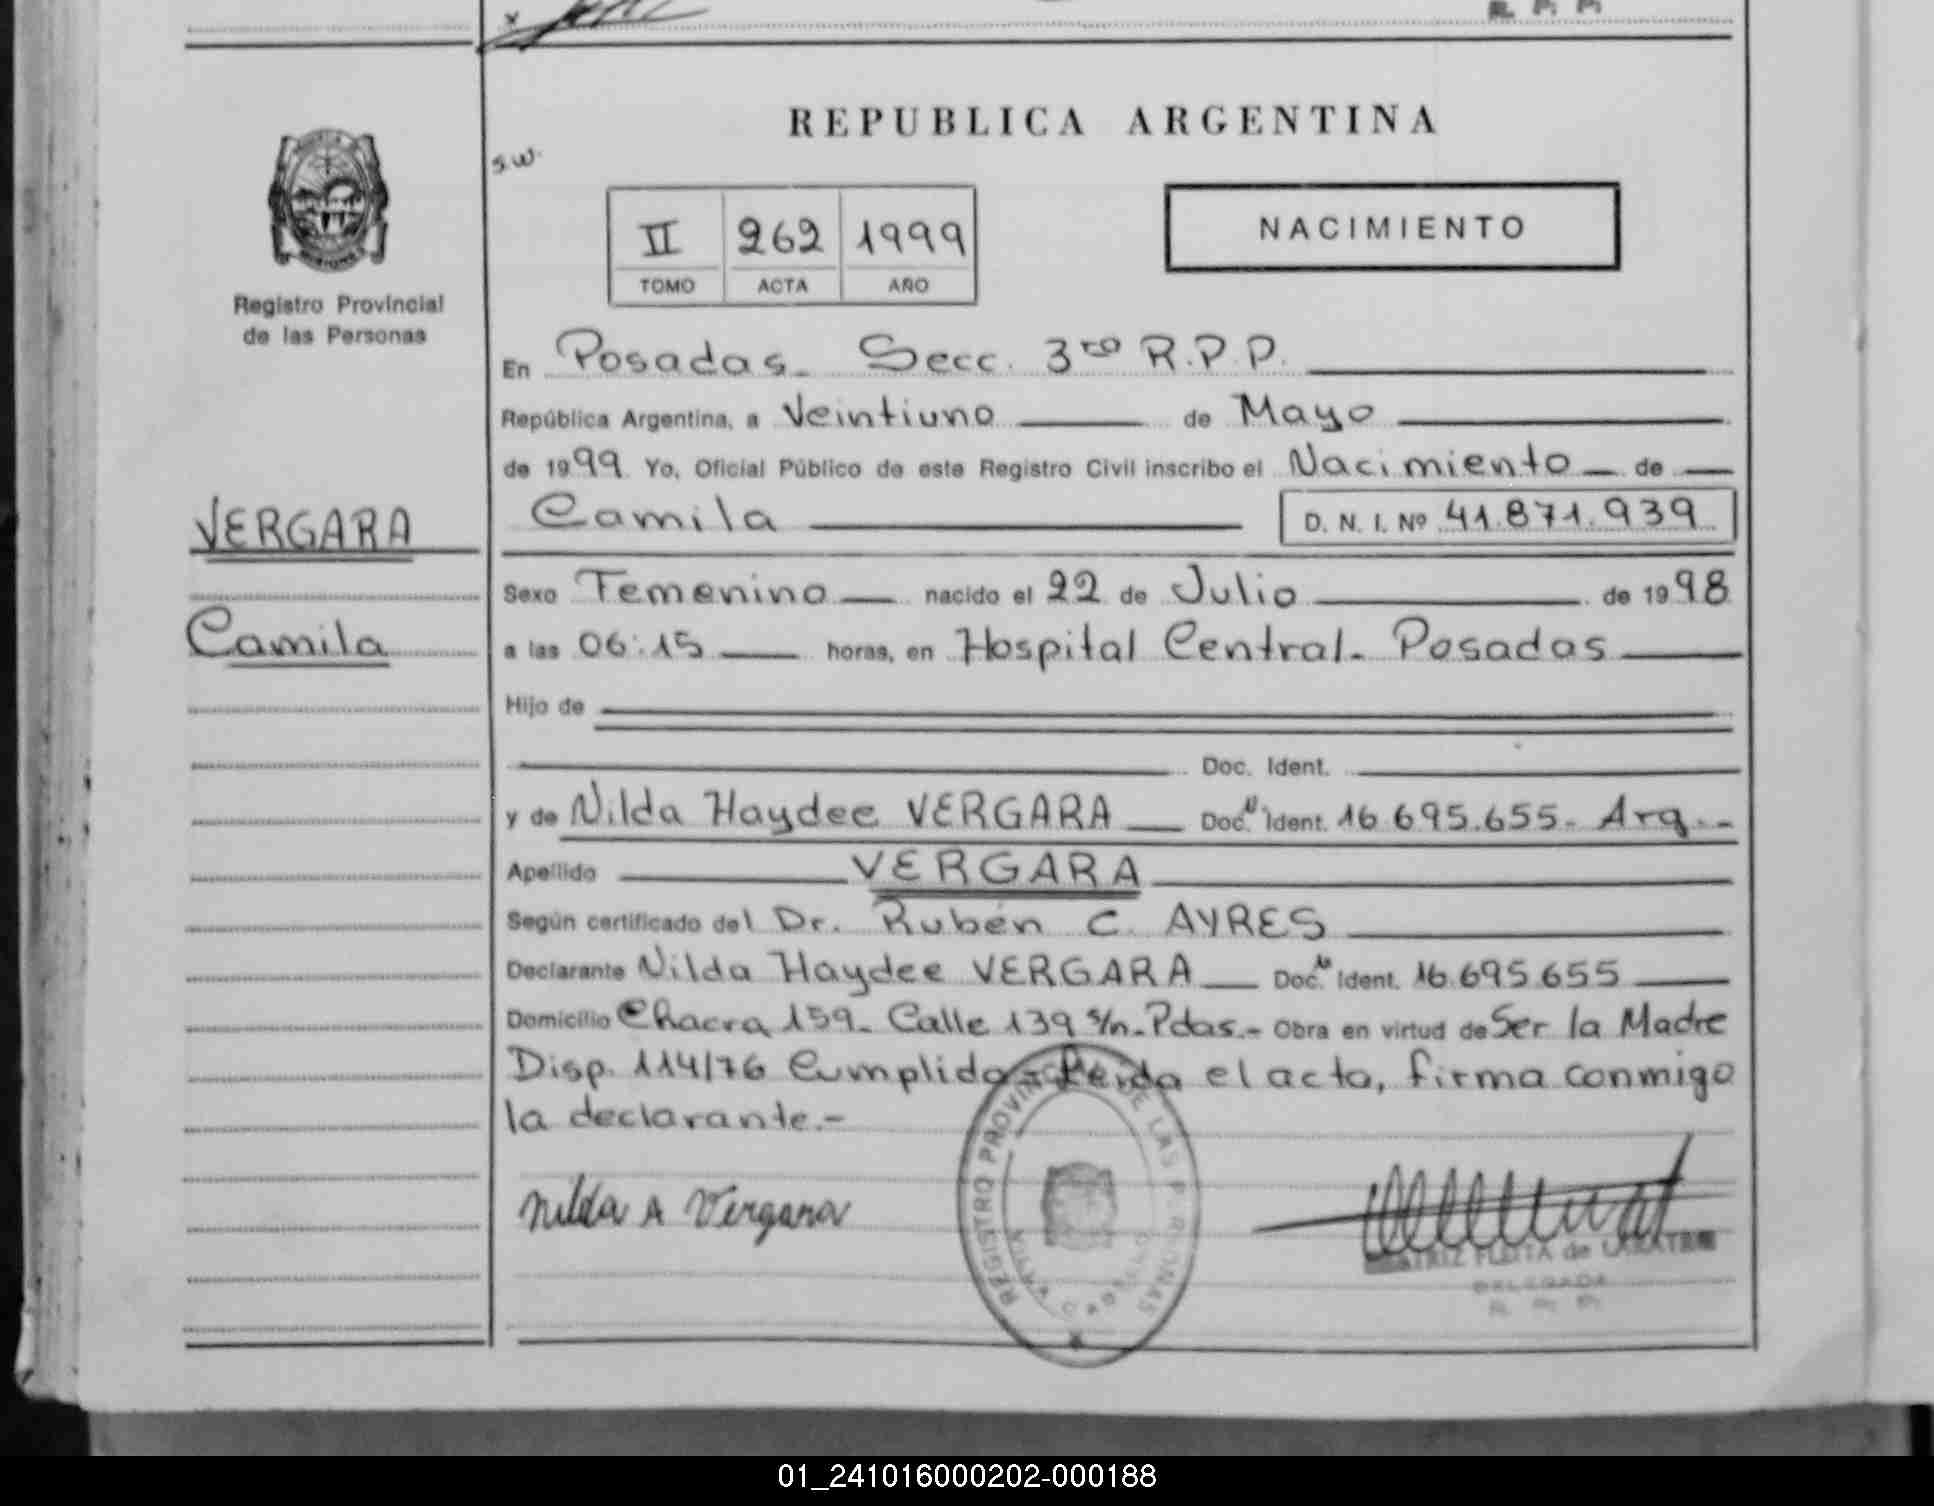 REPUBLICA ARGENTINA
s.w.
II 262 1999
TOMO ACTA AÑO
NACIMIENTO
Registro Provincial
de las Personas
En Posadas_ Secc. 3ra R.P.P.
República Argentina, a Veintiuno de Mayo
de 1999 Yo, Oficial Público de este Registro Civil inscribo el Nacimiento de
VERGARA
Camila D. N. I. Nº 41.871.939
Sexo Femenino nacido el 22 de Julio de 1998
Camila
a las 06:15 horas, en Hospital Central. Posadas
Hijo de
Doc. Ident.
y de Nilda Haydee VERGARA Doc. N Ident. 16.695.655. Arg.-
Apellido VERGARA
Según certificado del Dr. Rubén C. AYRES
Declarante Nilda Haydee VERGARA Doc. N Ident. 16.695.655
Domicilio Chacra 159_ Calle 139 s/n-Pdas.- Obra en virtud de Ser la Madre
Disp. 114/76 Cumplida - Leida el acta, firma conmigo
la declarante.-
Nilda A Vergara
REGISTRO PROVINCIAL DE LAS PERSONAS
DELEGADA
R. P. P.
01_241016000202-000188